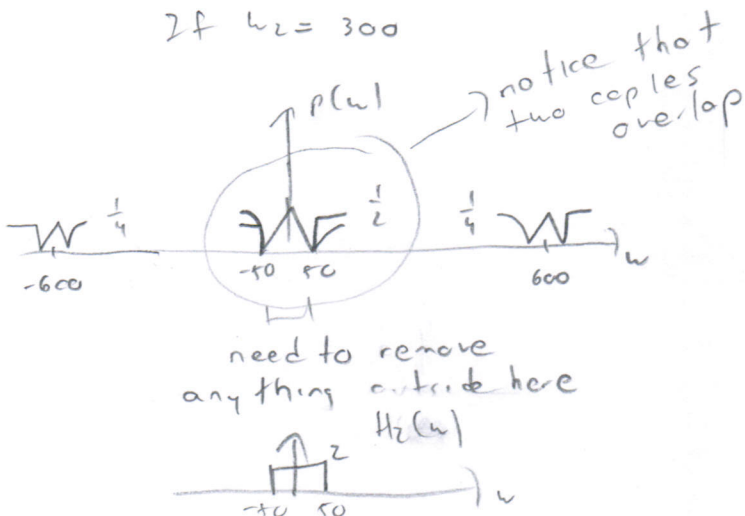 If w2 = 300
notice that
two copies
overlap
P(w)
1/4
1/2
1/4
-600
-50
50
600
w
need to remove
anything outside here
H2(w)
2
-50
50
w